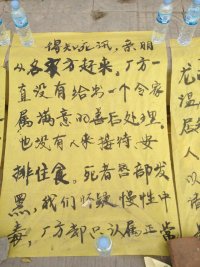 得知死讯，亲朋
从各家方赶来。厂方一
直没有给出一个令家
属满意的善后处理。
也没有人来接待、安
排住食。死者全部发
黑，我们怀疑慢性中
毒，厂方却只认属正常